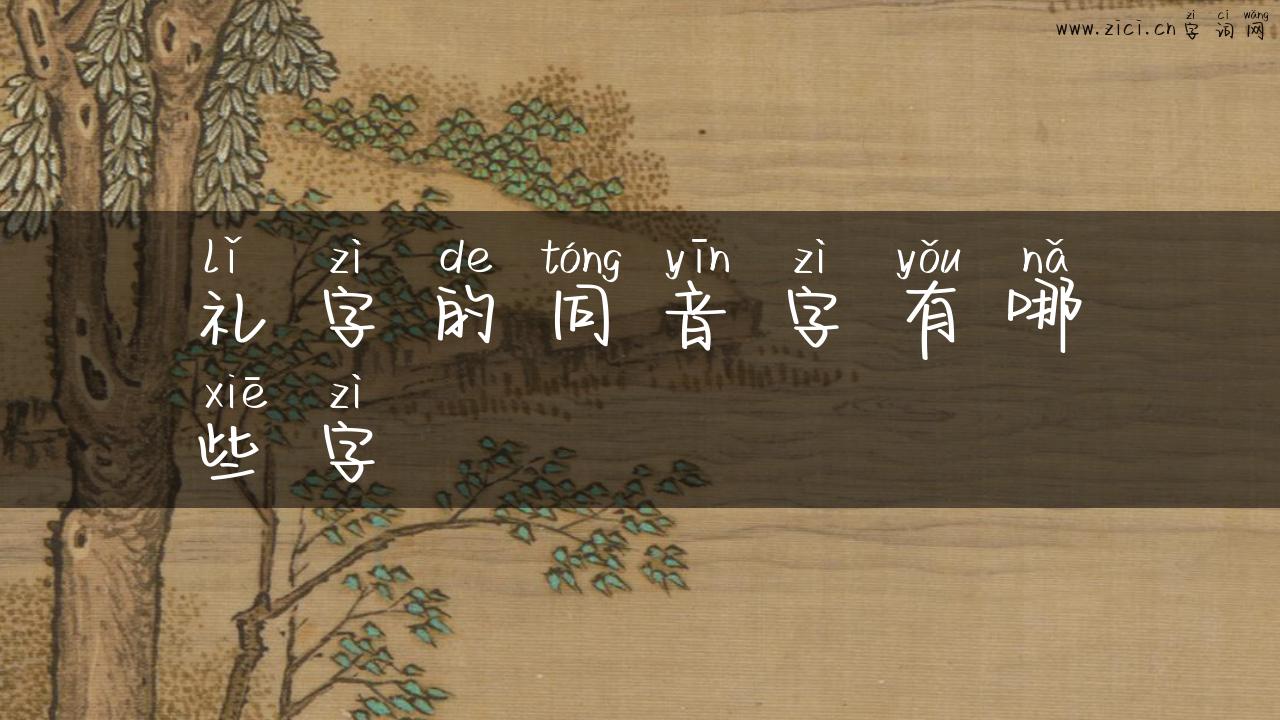 zì cí wǎng
www.zici.cn 字词网
lǐ zì de tóng yīn zì yǒu nǎ
礼字的同音字有哪
xiē zì
些字